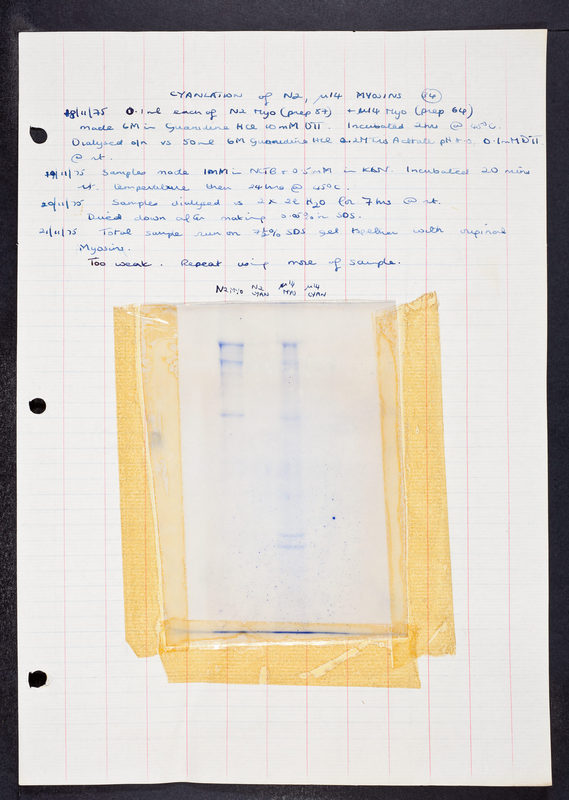 CYANLATION of N2, µ14 MYOSINS (64)
18/11/75 0.1ml each of N2 Myo (prep 57) + µ14 Myo (prep 64)
made 6M in Guanidine HCl 10mM DTT. Incubated @ 45°C.
Dialysed o/n vs 50ml 6M Guanidine HCl 0.2M Tris Acetate pH 0.1mM DTT
@ rt.
19/11/75 Samples made 1mM in NTCB + 0.5mM in KCN. Incubated 20 mins
rt. temperature then 24hrs @ 45°C.
20/11/75 Samples dialysed vs 2 x 2l H2O for 7hrs @ rt.
Dried down after making 0.05% in SDS.
21/11/75 Total sample run on 7½% SDS gel together with original
Myosins.
Too weak. Repeat using more of sample.
N2 MYO N2 CYAN µ14 MYO µ14 CYAN